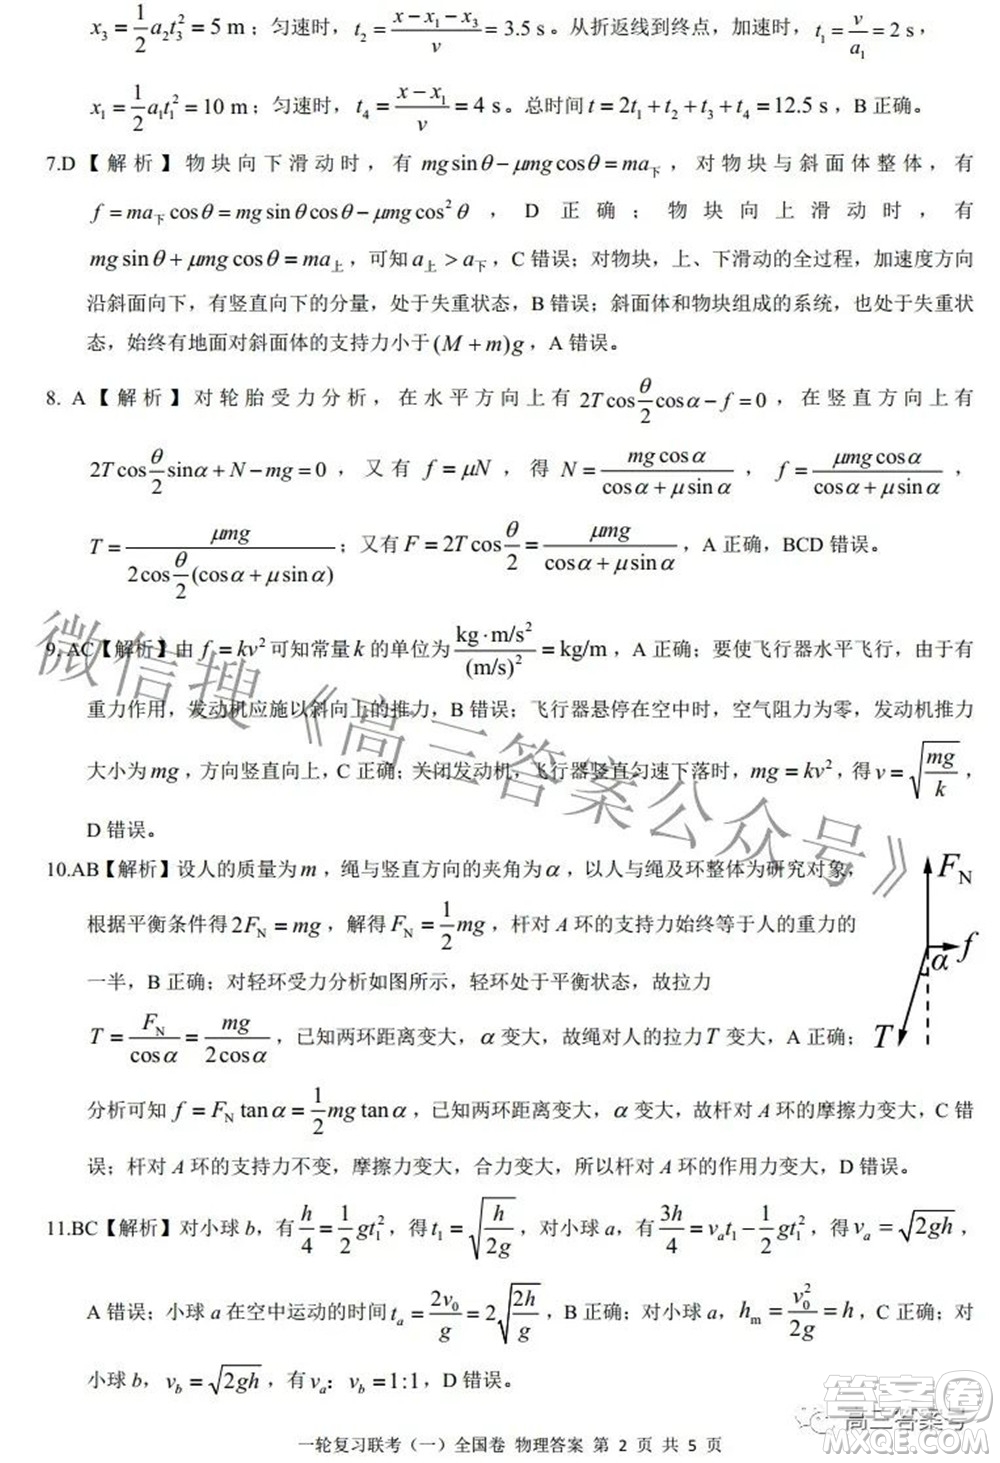 x₃=1/2 a₂t₃²=5 m；匀速时，t₂=(x−x₁−x₃)/v=3.5 s。从折返线到终点，加速时，t₁=v/a₁=2 s，
x₁=1/2 a₁t₁²=10 m；匀速时，t₄=(x−x₁)/v=4 s。总时间 t=2t₁+t₂+t₃+t₄=12.5 s，B 正确。
7.D【解析】物块向下滑动时，有 mg sinθ−μmg cosθ=ma下，对物块与斜面体整体，有
f=ma下cosθ=mg sinθcosθ−μmg cos²θ，D 正确；物块向上滑动时，有
mg sinθ+μmg cosθ=ma上，可知 a上>a下，C 错误；对物块，上、下滑动的全过程，加速度方向
沿斜面向下，有竖直向下的分量，处于失重状态，B 错误；斜面体和物块组成的系统，也处于失重状
态，始终有地面对斜面体的支持力小于(M+m)g，A 错误。
8. A【解析】对轮胎受力分析，在水平方向上有 2Tcos(θ/2)cosα−f=0，在竖直方向上有
2Tcos(θ/2)sinα+N−mg=0，又有 f=μN，得 N=mg cosα/(cosα+μsinα)，f=μmg cosα/(cosα+μsinα)，
T=μmg/(2cos(θ/2)(cosα+μsinα))；又有 F=2Tcos(θ/2)=μmg/(cosα+μsinα)，A 正确，BCD 错误。
9. AC【解析】由 f=kv² 可知常量 k 的单位为 (kg·m/s²)/(m/s)²=kg/m，A 正确；要使飞行器水平飞行，由于有
重力作用，发动机应施以斜向上的推力，B 错误；飞行器悬停在空中时，空气阻力为零，发动机推力
大小为 mg，方向竖直向上，C 正确；关闭发动机，飞行器竖直匀速下落时，mg=kv²，得 v=√(mg/k)，
D 错误。
10.AB【解析】设人的质量为 m，绳与竖直方向的夹角为 α，以人与绳及环整体为研究对象，
根据平衡条件得 2F_N=mg，解得 F_N=1/2 mg，杆对 A 环的支持力始终等于人的重力的
一半，B 正确；对轻环受力分析如图所示，轻环处于平衡状态，故拉力
T=F_N/cosα=mg/(2cosα)，已知两环距离变大，α 变大，故绳对人的拉力 T 变大，A 正确；
分析可知 f=F_N tanα=1/2 mg tanα，已知两环距离变大，α 变大，故杆对 A 环的摩擦力变大，C 错
误；杆对 A 环的支持力不变，摩擦力变大，合力变大，所以杆对 A 环的作用力变大，D 错误。
F_N
f
α
T
11.BC【解析】对小球 b，有 h/4=1/2 gt₁²，得 t₁=√(h/2g)，对小球 a，有 3h/4=v_a t₁−1/2 gt₁²，得 v_a=√2gh，
A 错误；小球 a 在空中运动的时间 t_a=2v₀/g=2√(2h/g)，B 正确；对小球 a，h_m=v₀²/2g=h，C 正确；对
小球 b，v_b=√2gh，有 v_a：v_b=1:1，D 错误。
一轮复习联考（一）全国卷 物理答案 第 2 页 共 5 页
微信搜《高三答案公众号》
高三答案号
答案圈
MXQE.COM